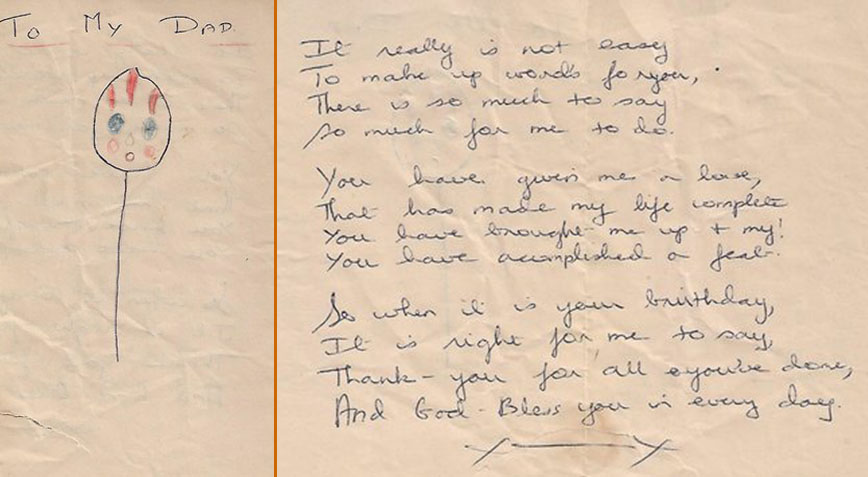 To My Dad
It really is not easy
To make up words for you,
There is so much to say
So much for me to do.
You have given me a love,
That has made my life complete
You have brought me up + my!
You have accomplished a feat.
So when it is your birthday,
It is right for me to say,
Thank-you for all you've done,
And God-Bless you in every day.